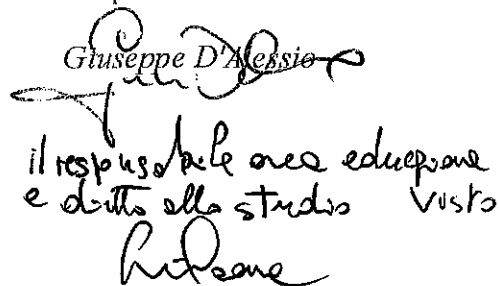 Giuseppe D'Alessio
il responsabile area educazione
e diritto allo studio visto